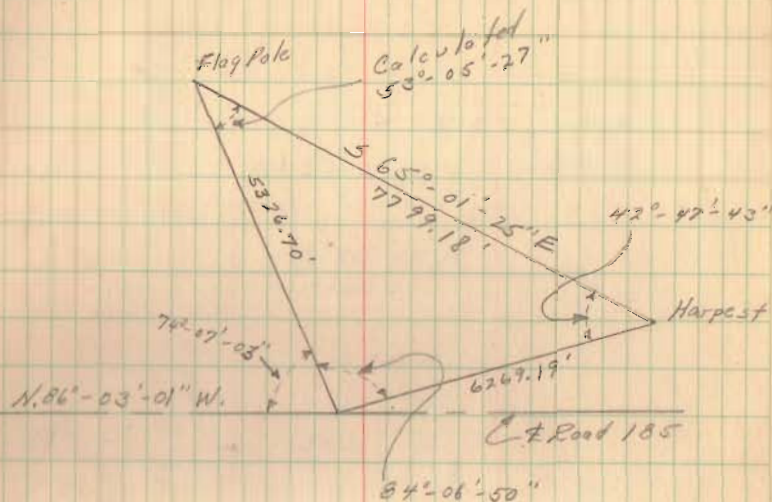 Flag Pole
Calculated
53°-05'-27"
S 65°-01'-25" E
7799.18'
5326.70'
42°-47'-43"
Harpest
74°-07'-03"
6269.19'
N. 86°-03'-01" W.
℄ Road 185
84°-06'-50"